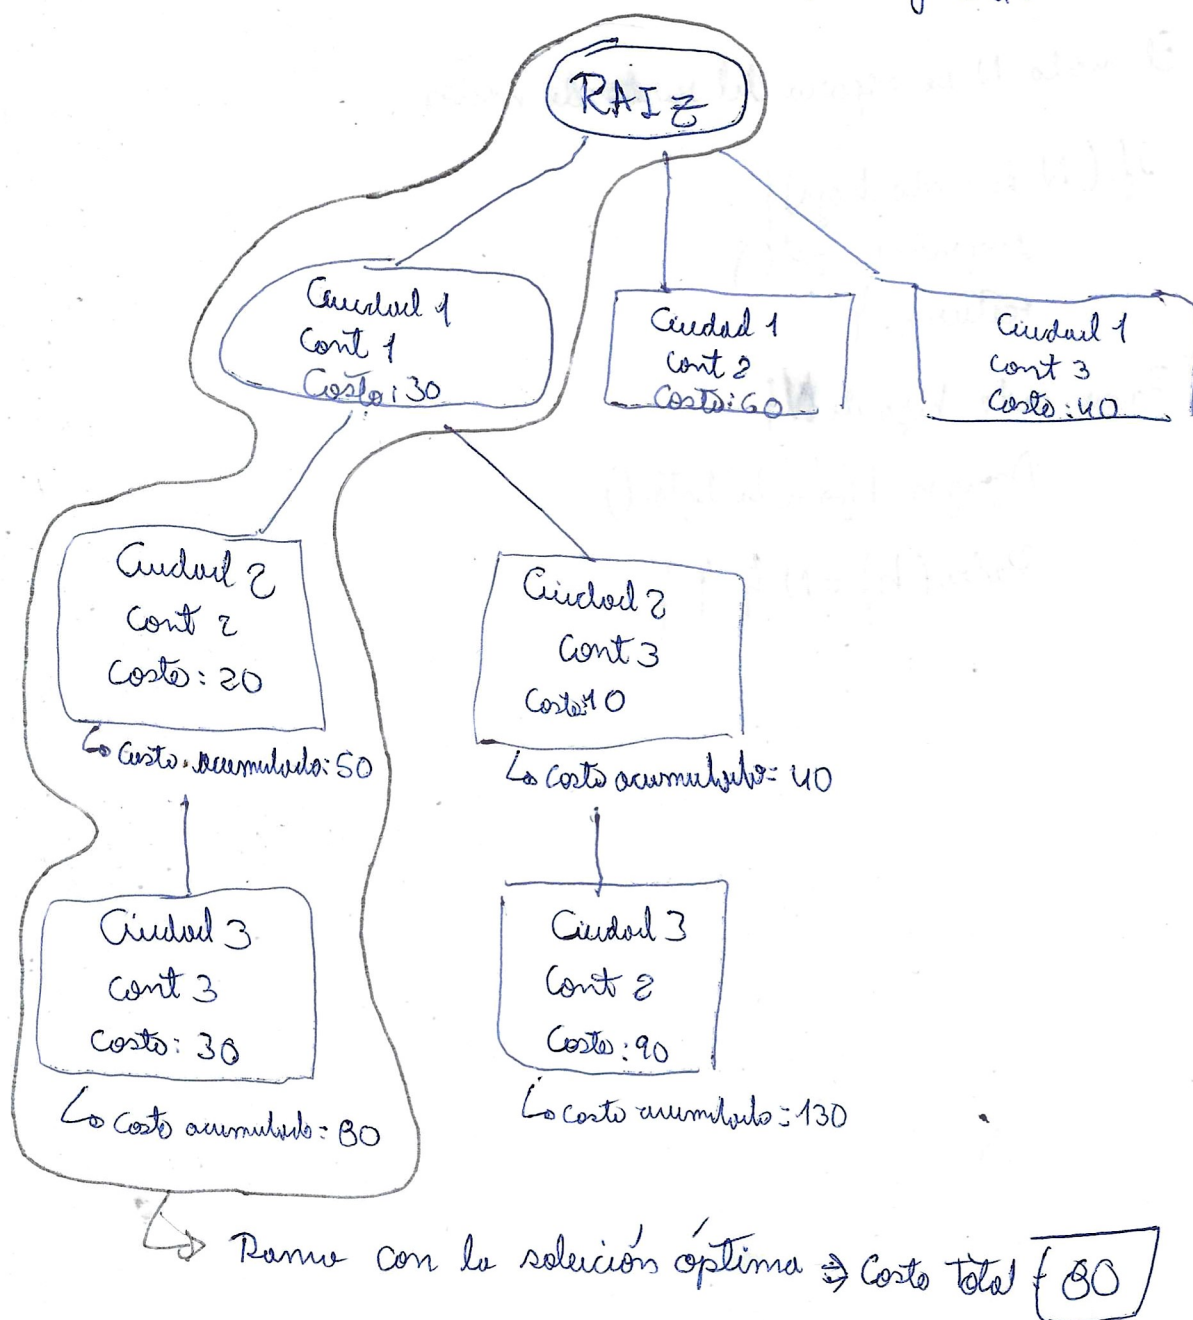 RAIZ
Ciudad 1
Cont 1
Costo: 30
Ciudad 1
Cont 2
Costo: 60
Ciudad 1
Cont 3
Costo: 40
Ciudad 2
Cont 2
Costo: 20
↳ Costo acumulado: 50
Ciudad 2
Cont 3
Costo: 10
↳ Costo acumulado: 40
Ciudad 3
Cont 3
Costo: 30
↳ Costo acumulado: 80
Ciudad 3
Cont 2
Costo: 90
↳ Costo acumulado: 130
Rama con la solución óptima ⇒ Costo Total = 80